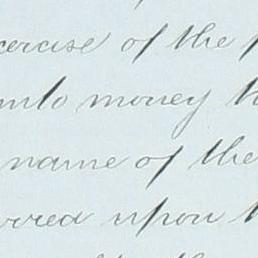 exercise of the
into money
name of the
rred upon